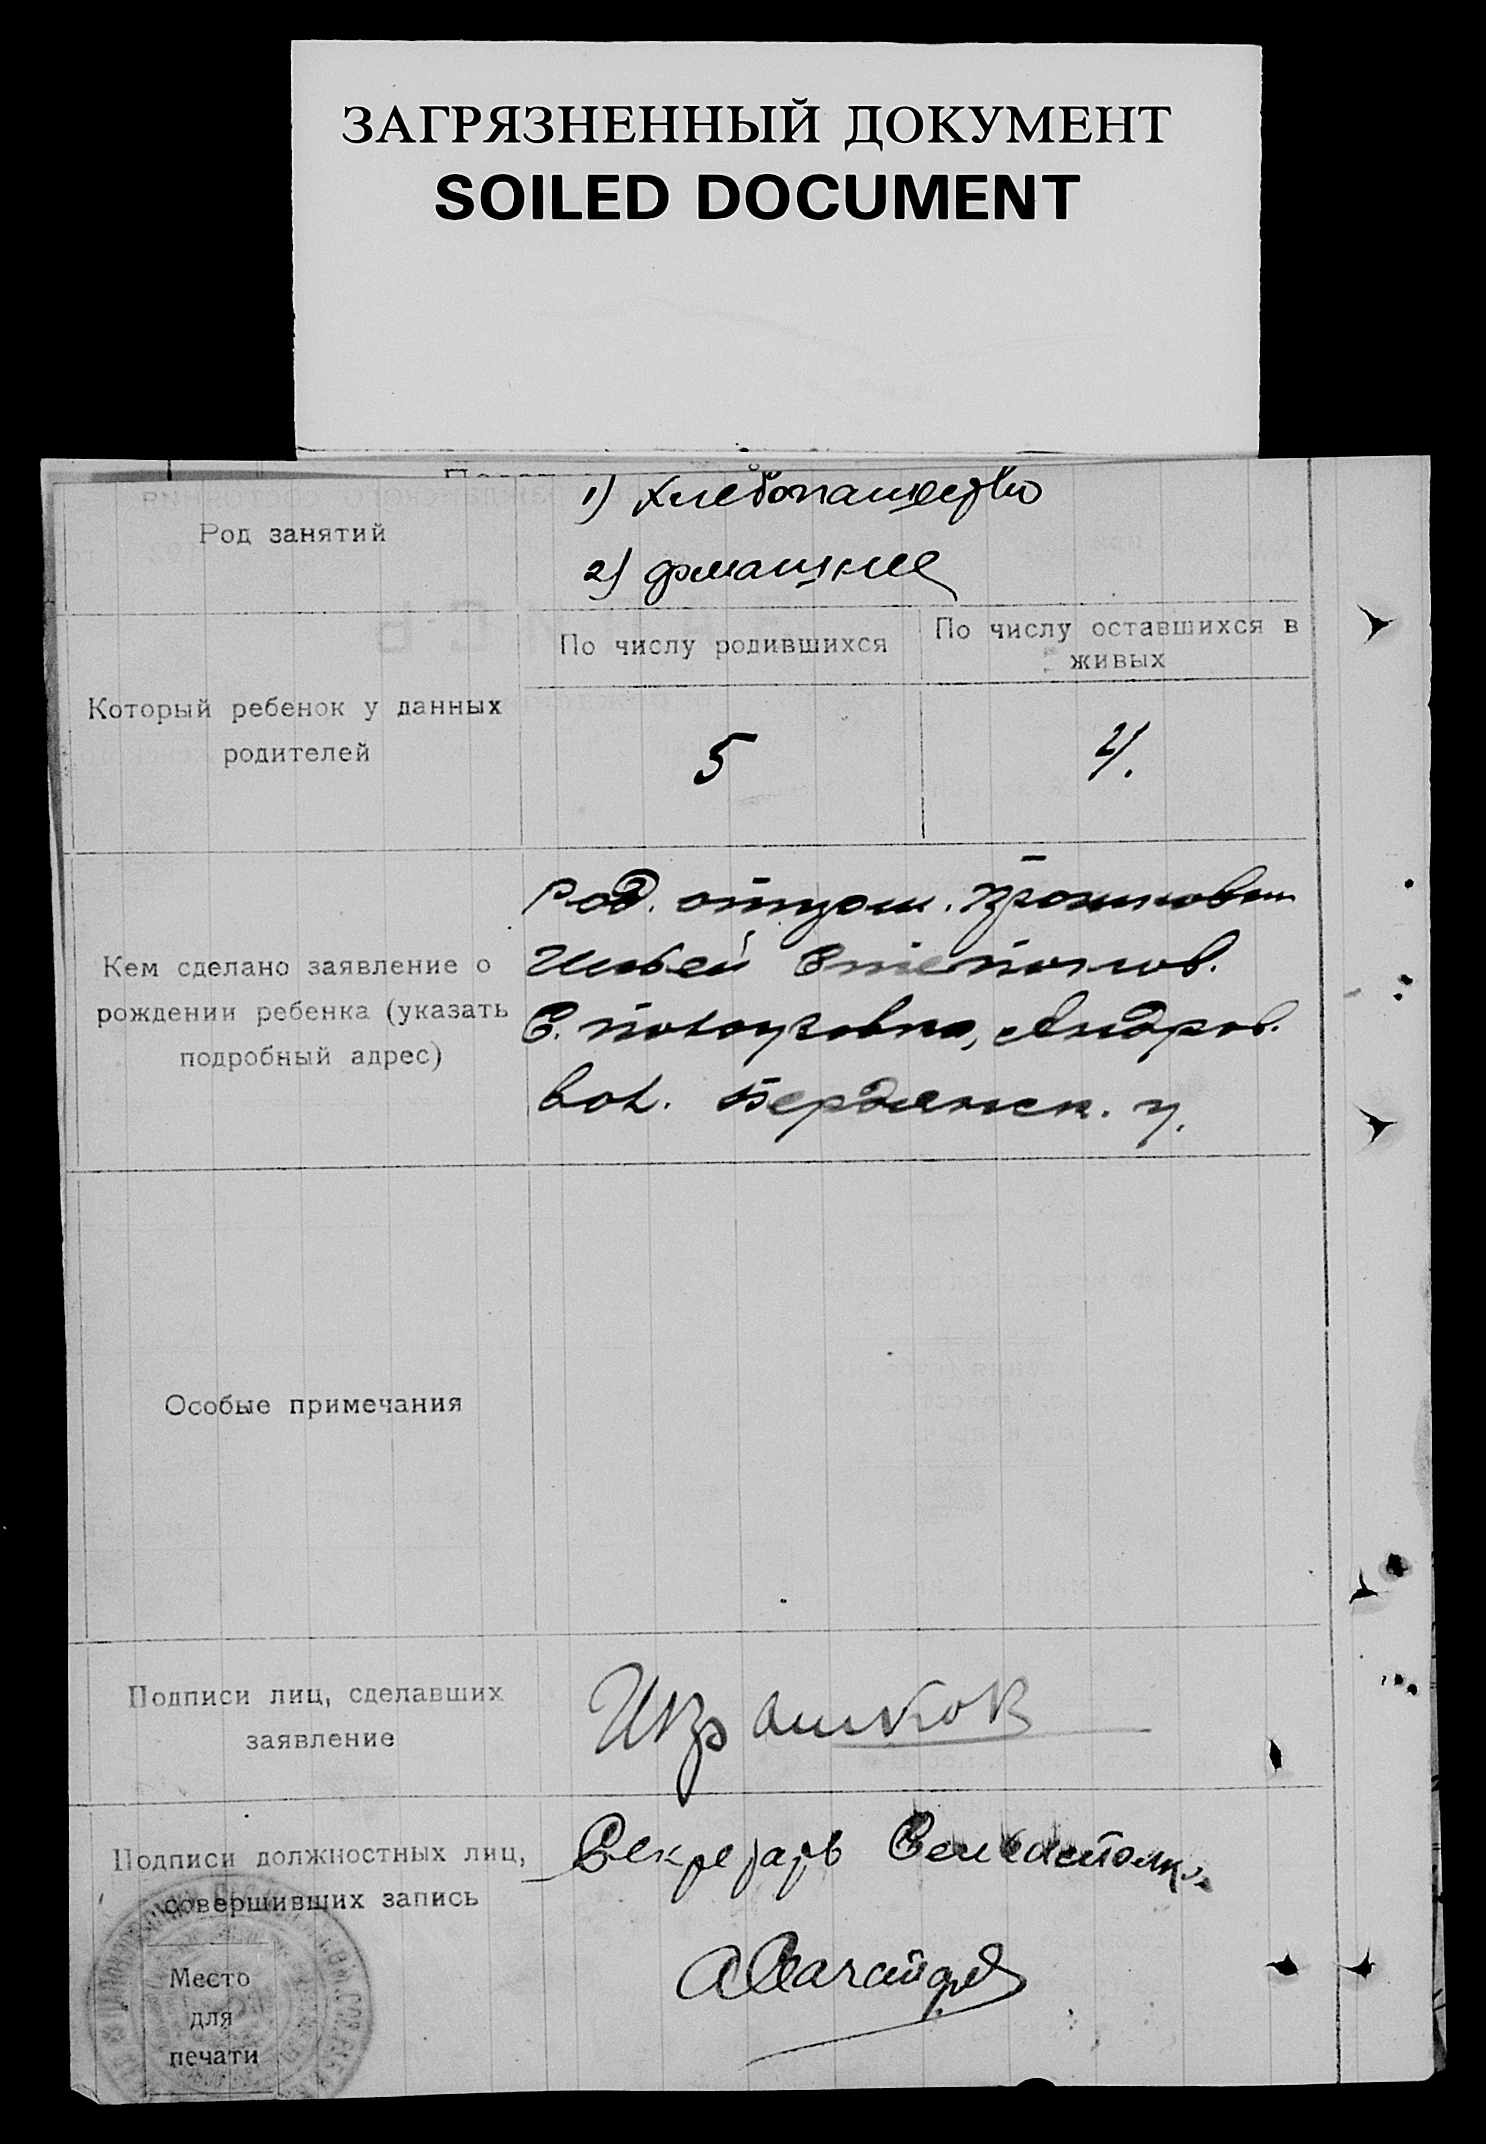 ЗАГРЯЗНЕННЫЙ ДОКУМЕНТ
SOILED DOCUMENT
Род занятий
1) хлебопашество
2) домашнее
Который ребенок у данных
родителей
По числу родившихся
По числу оставшихся в
живых
5
4.
Кем сделано заявление о
рождении ребенка (указать
подробный адрес)
Род. отцом.
Ильей
С. Андров.
вол. Бердянск. у.
Особые примечания
Подписи лиц, сделавших
заявление
Подписи должностных лиц,
совершивших запись
Секретарь
Место
для
печати